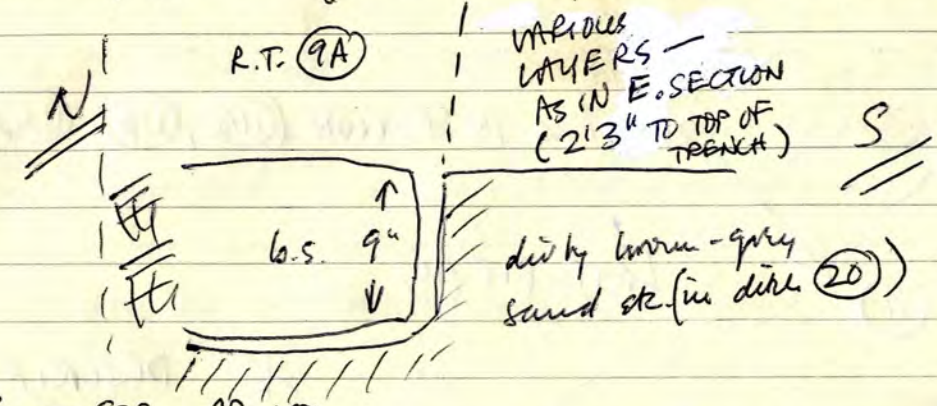 R.T. 9A
VARIOUS
LAYERS —
AS IN E. SECTION
(2'3" TO TOP OF
TRENCH)
N
S
b.s. 9"
dirty brown-grey
sand etc. (in ditch 20)